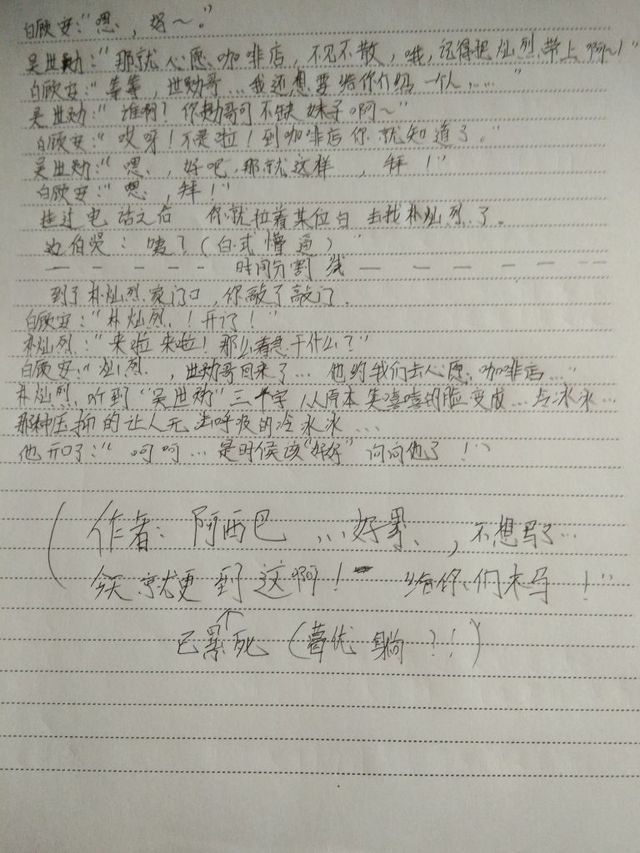 白欣安:“嗯、,好~。”
吴世勋:“那就心愿、咖啡店,不见不散,哦,记得把灿烈、带上啊~!”
白欣安:“等等,世勋哥...我还想要给你介绍一个人、...”
吴世勋:“谁啊?你勋哥可不缺妹子啊~”
白欣安:“哎呀!不是啦!到咖啡店你就知道了。”
吴世勋:“嗯、,好吧,那就这样,拜!”
白欣安:“嗯、,拜!”
挂过电话之后 你就拉着某位白去找朴灿烈、了。
边伯贤:咦?(白式懵逼)
— — — — 时间分割线 — — — —
到了朴灿烈、家门口,你敲了敲门、
白欣安:“朴灿烈、!开门!”
朴灿烈、:“来啦来啦!那么着急干什么?”
白欣安:“灿烈、,世勋哥回来了...他约我们去心愿、咖啡店...”
朴灿烈、听到“吴世勋”三个字 从原本笑嘻嘻的脸变成...冷冰冰...
那种压抑的让人无法呼吸的冷冰冰...
他开口了:“呵呵...是时候该“好好”问问他了!”
(作者:阿西巴...好累、,不想写了...
今天就更到这啊!给你们木马!”
已累死(葛优躺?!)